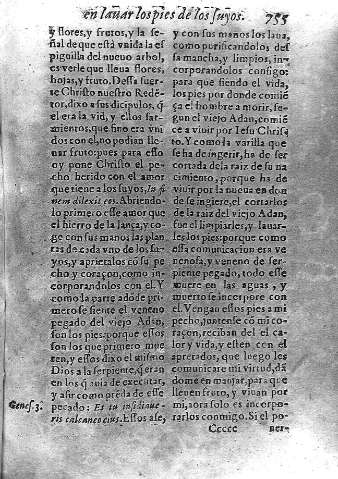 en lauar los pies de los suyos. 755
y flores, y frutos, y la se-
ñal de que está vnida la es
piguilla del nueuo arbol,
es verle que lleua flores,
hojas, y fruto. Dessa suer-
te Christo nuestro Redē-
tor, dixo a sus dicipulos, q̄
el era la vid, y ellos sar-
mientos, que sino era vni
dos con el, no podian lle-
uar fruto: pues para esso
oy pone Christo el pe-
cho herido con el amor
que tiene a los suyos, in fi
nem dilexit eos. Abriendo
lo primero esse amor que
el hierro de la lança, y co-
ge con sus manos las plan
tas de cada vno de los su-
yos, y aprietalos cō su pe
cho y coraçon, como in-
corporandolos con el. Y
como la parte adōde pri-
mero se siente el veneno
pegado del viejo Adan,
son los pies: porque essos
son los que primero mue
ren, y esso dixo el mismo
Dios a la serpiente, q̄ eran
en los q̄ auia de executar,
y asir como presa de esse
pecado: Es tu insidiaue-
ris calcaneo eius. Essos ase,
Genes. 3.
y con sus manos los laua,
como purificandolos des
sa mancha, y limpios, in-
corporandolos consigo:
para que siendo el vida,
los pies por donde comiē
ça el hombre a morir, se-
gun el viejo Adan, comiē
ce a viuir por Iesu Chris
to. Y como la varilla que
se ha de ingerir, ha de ser
cortada de la raiz de su na
cimiento, porque ha de
viuir por la nueua en don
de se ingiere, el cortarlos
de la raiz del viejo Adan,
fue el limpiarles, y lauar-
les los pies: porque como
essa comunicacion era ve
nenosa, y veneno de ser-
piente pegado, todo esse
muere en las aguas, y
muerto se incorpore con
el. Vengan essos pies a mi
pecho, juntense cō mi co-
raçon, reciban del el ca-
lor y vida, y esten con el
apretados, que luego les
comunicare mi virtud, dā
dome en manjar, para que
lleuen fruto, y viuan por
mi, aora solo es incorpo-
rarlos conmigo. Si el po-
Ccccc